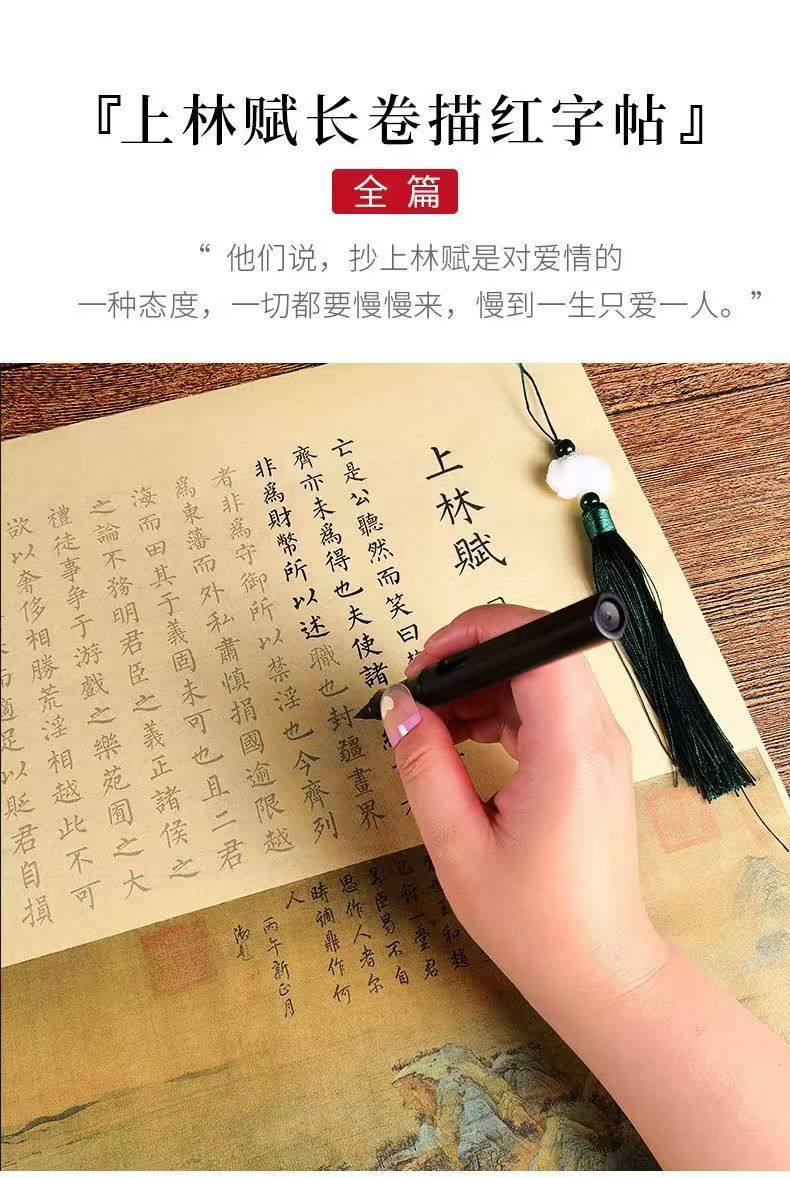 『上林赋长卷描红字帖』
全篇
“他们说，抄上林赋是对爱情的
一种态度，一切都要慢慢来，慢到一生只爱一人。”
上林賦
亡是公聽然而笑曰
齊亦未爲得也夫使諸
非爲財幣所以述職也封疆畫界
者非爲守御所以禁淫也今齊列
爲東藩而外私肅慎捐國逾限越
海而田其于義固未可也且二君
之論不務明君臣之義正諸侯之
禮徒事争于游戲之樂苑囿之大
欲以奢侈相勝荒淫相越此不可
適足以貶君自損
王和趙
一堂君
臣曷不自
思作人者尔
時調鼎作何
人
丙午新正月
御題